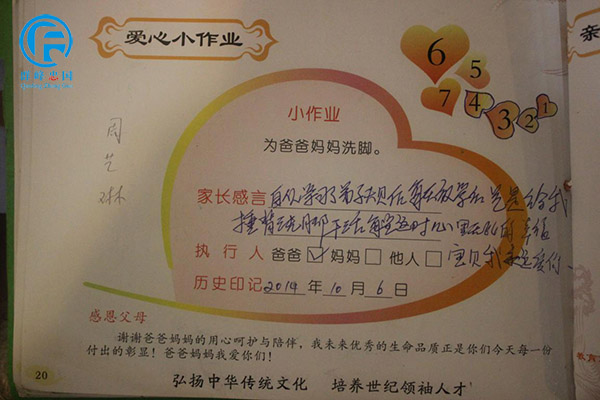 爱心小作业
亲
6
5
7
4
3
2
1
小作业
为爸爸妈妈洗脚。
周艺琳
家长感言 自从学习了弟子规后每天放学后总是给我
捶背洗脚干活每当这时心里无比的幸福
执行人 爸爸 妈妈 他人 宝贝我永远爱你
历史印记 2014 年 10 月 6 日
感恩父母
谢谢爸爸妈妈的用心呵护与陪伴，我未来优秀的生命品质正是你们今天每一份
付出的彰显！爸爸妈妈我爱你们！
教育
20
弘扬中华传统文化 培养世纪领袖人才